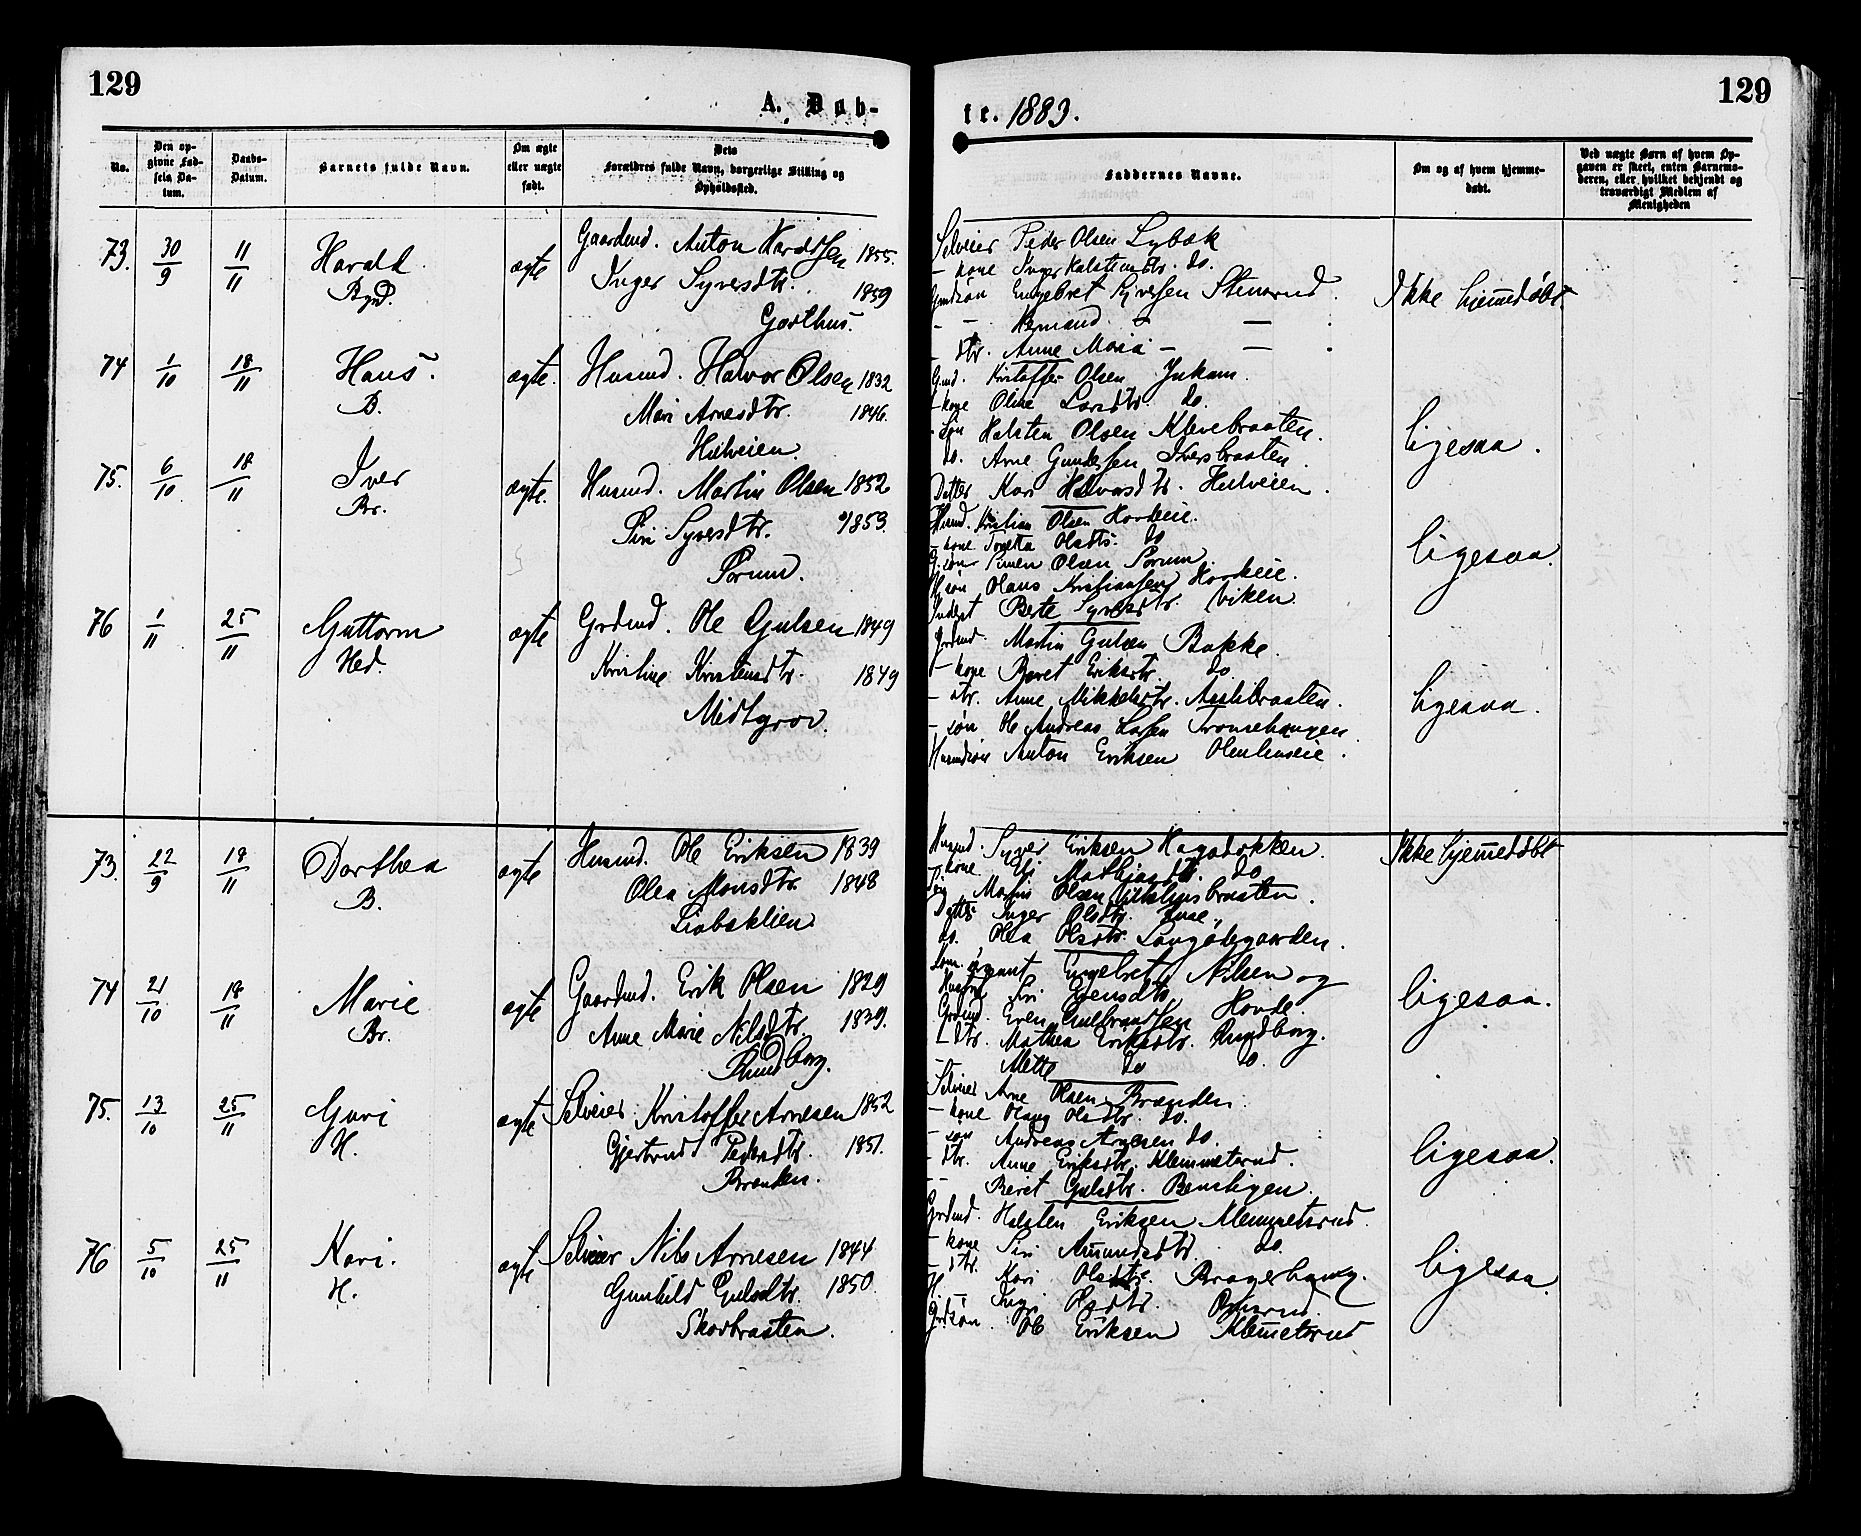 129
A. Døb-
No.
Den op-
givne Fød-
sels Da-
tum.
Daabs-
Datum.
Barnets fulde Navn.
Om ægte
eller uægte
født.
Dets
Forældres fulde Navn, borgerlige Stilling og
Opholdssted.
73. 30/9 11/11 Harald ægte Gaardmd. Anton 1855.
Bgd. Inger Syversdtr. 1859
Garthus.
74 1/10 18/11 Hans. ægte. Husmd. Halvor Olsen 1832
B. Mari Arnesdtr. 1846.
Hulveien.
75. 6/10 18/11 Iver ægte. Husmd. Martin Olsen 1852
Br. Siri Syversdtr. 1853.
Sorum.
76 1/11 25/11 Guttorm ægte Grdmd. Ole Gulsen 1849
Hed. Kristine Kristensdtr. 1849
Midtgrov.
73. 22/9 18/11 Dorthea ægte Husmd. Ole Eriksen 1839
B. Olea Monsdtr. 1848
Liabaklien
74 21/10 18/11 Marie ægte Gaardmd. Erik Olsen 1829
Br. Anne Marie Nilsdtr. 1839.
Rundborg.
75. 13/10 25/11 Guri ægte Selveier Kristoffer Arnesen 1852
H. Gjertrud Pedersdtr. 1851.
Brænden.
76 5/10 25/11 Kari. ægte Selveier Nils Arnesen 1844
H. Gunhild Gulsdtr. 1850.
Skarbraaten.
129
te. 1883.
Faddernes Navne.
Om og af hvem hjemme-
døbt.
Ved uægte Børn af hvem Op-
gaven er skeet, enten Barnemo-
deren, eller hvilket bekjendt og
troværdigt Medlem af
Menigheden
Selveier Peder Olsen Lybæk
- kone Inger Halstensdtr. do.
Engebret Syversen Stensrud. Ikke hjemmedøbt
- - - — .
- dtr. Anne Maria - — .
Gmd. Kristoffer Olsen
- kone Oline Larsdtr. do.
- søn Halsten Olsen Klevebraaten. ligesaa.
do. Arne Gundersen Iversbraaten.
Datter Kari Halvorsdtr. Hulveien.
Husmd. Kristian Olsen Horkeie.
- kone Olsdtr. do
G. søn Simen Olsen Sorum. ligesaa.
H søn Olaus Kristiansen Horkeie.
Inderst Berte Syversdtr. Viken.
Grdmd. Martin Gulsen Bakke.
- kone Beret Eriksdtr. do
- dtr. Anne Mikkelsdtr. ligesaa.
- søn Ole Andreas Tronsehaugen
Husmdsøn Anton Eriksen
Husmd. Syver Eriksen Hagadokken. Ikke hjemmedøbt
- kone Mathiasdtr. do
Martin Olsen
Datter Inger Olsdtr.
do. Olea Olsdtr. Langødegaarden.
Engebret Nilsen og
Hustru Siri Hovde. ligesaa.
Grdmd. Even Gulbrandsen
- dtr. Mathea Eriksdtr. Rundborg.
- Mette do do.
Selveier Arne Olsen Brænden.
- kone Olsdtr. do.
- søn Andreas Arnesen do.
- dtr. Anne Eriksdtr. Klemmetsrud. ligesaa.
- - Beret Gulsdtr.
Grdmd. Halsten Eriksen Klemmetsrud.
- kone Siri Amundsdtr. do.
- dtr. Kari Olsdtr. Bragerhaug. ligesaa.
H. - Ingri Olsdtr.
Grdsøn Ole Eriksen Klemmetsrud